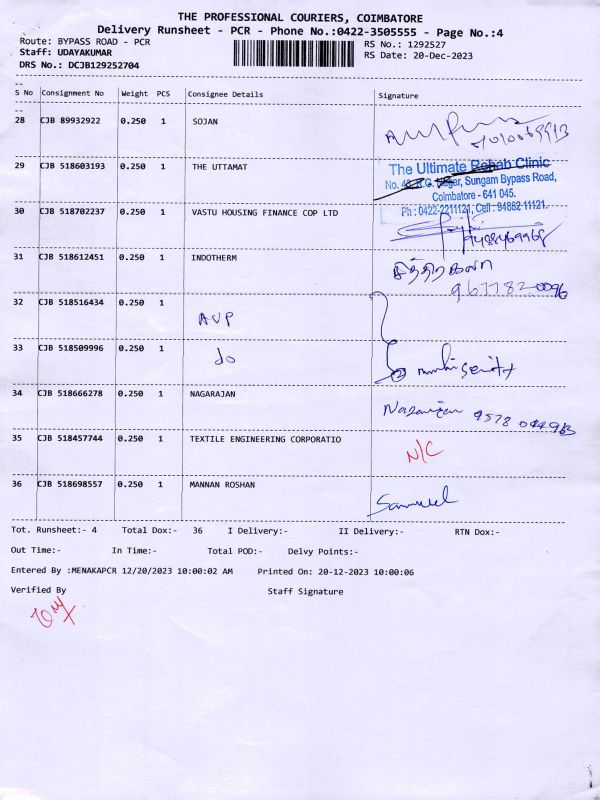 THE PROFESSIONAL COURIERS, COIMBATORE
Delivery Runsheet - PCR - Phone No.:0422-3505555 - Page No.:4
Route: BYPASS ROAD - PCR
RS No.: 1292527
Staff: UDAYAKUMAR
RS Date: 20-Dec-2023
DRS No.: DCJB129252704
S No Consignment No Weight PCS Consignee Details Signature
28 CJB 89932922 0.250 1 SOJAN
29 CJB 518603193 0.250 1 THE UTTAMAT
The Ultimate Rehab Clinic
No. 48, R.G. Nagar, Sungam Bypass Road,
Coimbatore - 641 045.
Ph : 0422-2211121, Cell : 94882-11121.
30 CJB 518702237 0.250 1 VASTU HOUSING FINANCE COP LTD
31 CJB 518612451 0.250 1 INDOTHERM சித்திரகலா
967782 0096
32 CJB 518516434 0.250 1 AVP
33 CJB 518509996 0.250 1 do
34 CJB 518666278 0.250 1 NAGARAJAN Nagarajan 9578 044963
35 CJB 518457744 0.250 1 TEXTILE ENGINEERING CORPORATIO N/C
36 CJB 518698557 0.250 1 MANNAN ROSHAN Samuel
Tot. Runsheet:- 4 Total Dox:- 36 I Delivery:- II Delivery:- RTN Dox:-
Out Time:- In Time:- Total POD:- Delvy Points:-
Entered By :MENAKAPCR 12/20/2023 10:00:02 AM Printed On: 20-12-2023 10:00:06
Verified By Staff Signature